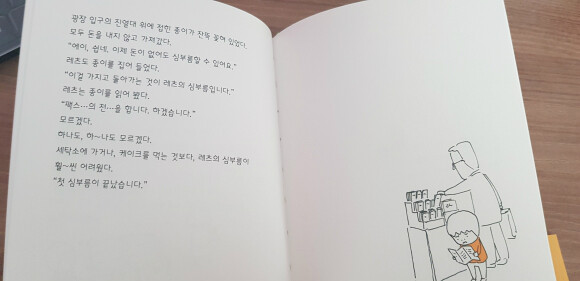 광장 입구의 진열대 위에 접힌 종이가 잔뜩 꽂혀 있었다.
모두 돈을 내지 않고 가져갔다.
“에이, 쉽네. 이제 돈이 없어도 심부름할 수 있어요.”
레츠도 종이를 집어 들었다.
“이걸 가지고 돌아가는 것이 레츠의 심부름입니다.”
레츠는 종이를 읽어 봤다.
“팩스…의 전…을 합니다. 하겠습니다.”
모르겠다.
하나도, 하~나도 모르겠다.
세탁소에 가거나, 케이크를 먹는 것보다, 레츠의 심부름이
훨~씬 어려웠다.
“첫 심부름이 끝났습니다.”